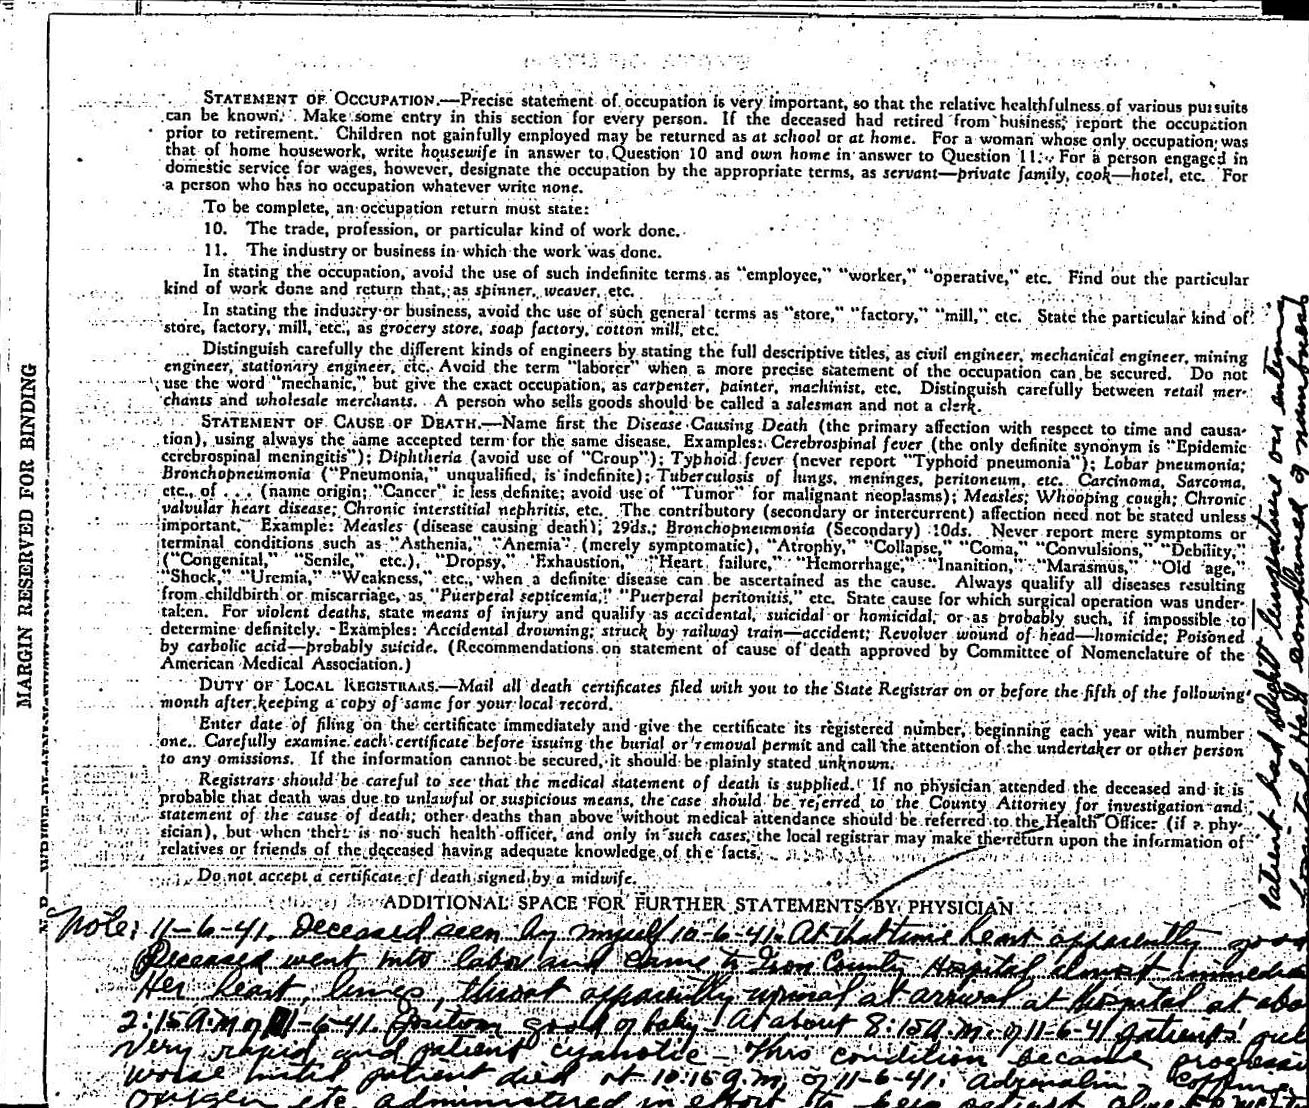 STATEMENT OF OCCUPATION.—Precise statement of occupation is very important, so that the relative healthfulness of various pursuits
can be known. Make some entry in this section for every person. If the deceased had retired from business, report the occupation
prior to retirement. Children not gainfully employed may be returned as at school or at home. For a woman whose only occupation was
that of home housework, write housewife in answer to Question 10 and own home in answer to Question 11. For a person engaged in
domestic service for wages, however, designate the occupation by the appropriate terms, as servant—private family, cook—hotel, etc. For
a person who has no occupation whatever write none.
To be complete, an occupation return must state:
10. The trade, profession, or particular kind of work done.
11. The industry or business in which the work was done.
In stating the occupation, avoid the use of such indefinite terms as "employee," "worker," "operative," etc. Find out the particular
kind of work done and return that, as spinner, weaver, etc.
In stating the industry or business, avoid the use of such general terms as "store," "factory," "mill," etc. State the particular kind of
store, factory, mill, etc., as grocery store, soap factory, cotton mill, etc.
Distinguish carefully the different kinds of engineers by stating the full descriptive titles, as civil engineer, mechanical engineer, mining
engineer, stationary engineer, etc. Avoid the term "laborer" when a more precise statement of the occupation can be secured. Do not
use the word "mechanic," but give the exact occupation, as carpenter, painter, machinist, etc. Distinguish carefully between retail mer-
chants and wholesale merchants. A person who sells goods should be called a salesman and not a clerk.
STATEMENT OF CAUSE OF DEATH.—Name first the Disease Causing Death (the primary affection with respect to time and causa-
tion), using always the same accepted term for the same disease. Examples: Cerebrospinal fever (the only definite synonym is "Epidemic
cerebrospinal meningitis"); Diphtheria (avoid use of "Croup"); Typhoid fever (never report "Typhoid pneumonia"); Lobar pneumonia;
Bronchopneumonia ("Pneumonia," unqualified, is indefinite); Tuberculosis of lungs, meninges, peritoneum, etc. Carcinoma, Sarcoma,
etc., of . . . (name origin; "Cancer" is less definite; avoid use of "Tumor" for malignant neoplasms); Measles; Whooping cough; Chronic
valvular heart disease; Chronic interstitial nephritis, etc. The contributory (secondary or intercurrent) affection need not be stated unless
important. Example: Measles (disease causing death); 29ds.; Bronchopneumonia (Secondary) 10ds. Never report mere symptoms or
terminal conditions such as "Asthenia," "Anemia" (merely symptomatic), "Atrophy," "Collapse," "Coma," "Convulsions," "Debility,"
("Congenital," "Senile," etc.), "Dropsy," "Exhaustion," "Heart failure," "Hemorrhage," "Inanition," "Marasmus," "Old age,"
"Shock," "Uremia," "Weakness," etc., when a definite disease can be ascertained as the cause. Always qualify all diseases resulting
from childbirth or miscarriage, as "Puerperal septicemia," "Puerperal peritonitis," etc. State cause for which surgical operation was under-
taken. For violent deaths, state means of injury and qualify as accidental, suicidal or homicidal, or as probably such, if impossible to
determine definitely. Examples: Accidental drowning; struck by railway train—accident; Revolver wound of head—homicide; Poisoned
by carbolic acid—probably suicide. (Recommendations on statement of cause of death approved by Committee of Nomenclature of the
American Medical Association.)
DUTY OF LOCAL REGISTRARS.—Mail all death certificates filed with you to the State Registrar on or before the fifth of the following
month after keeping a copy of same for your local record.
Enter date of filing on the certificate immediately and give the certificate its registered number, beginning each year with number
one. Carefully examine each certificate before issuing the burial or removal permit and call the attention of the undertaker or other person
to any omissions. If the information cannot be secured, it should be plainly stated unknown.
Registrars should be careful to see that the medical statement of death is supplied. If no physician attended the deceased and it is
probable that death was due to unlawful or suspicious means, the case should be referred to the County Attorney for investigation and
statement of the cause of death; other deaths than above without medical attendance should be referred to the Health Officer (if a phy-
sician), but when there is no such health officer, and only in such cases, the local registrar may make the return upon the information of
relatives or friends of the deceased having adequate knowledge of the facts.
Do not accept a certificate of death signed by a midwife.
ADDITIONAL SPACE FOR FURTHER STATEMENTS BY PHYSICIAN
Note: 11-6-41. Deceased seen by myself 10-6-41. At that time heart apparently good
Deceased went into labor and came to Iron County Hospital almost immedia
Her heart, lungs, throat apparently normal at arrival at hospital at abo
2:15 A.M. of 11-6-41. Position good of baby. At about 8:15 A.M. of 11-6-41 patients' pul
very rapid and patient cyanotic — This condition became progressi
worse until patient died at 10:15 a.m. of 11-6-41. Adrenalin, Coramine,
Oxygen etc. administered in effort to keep patient alive
MARGIN RESERVED FOR BINDING
Patient had slight temperature on entering
hospital. Had complained of numbness